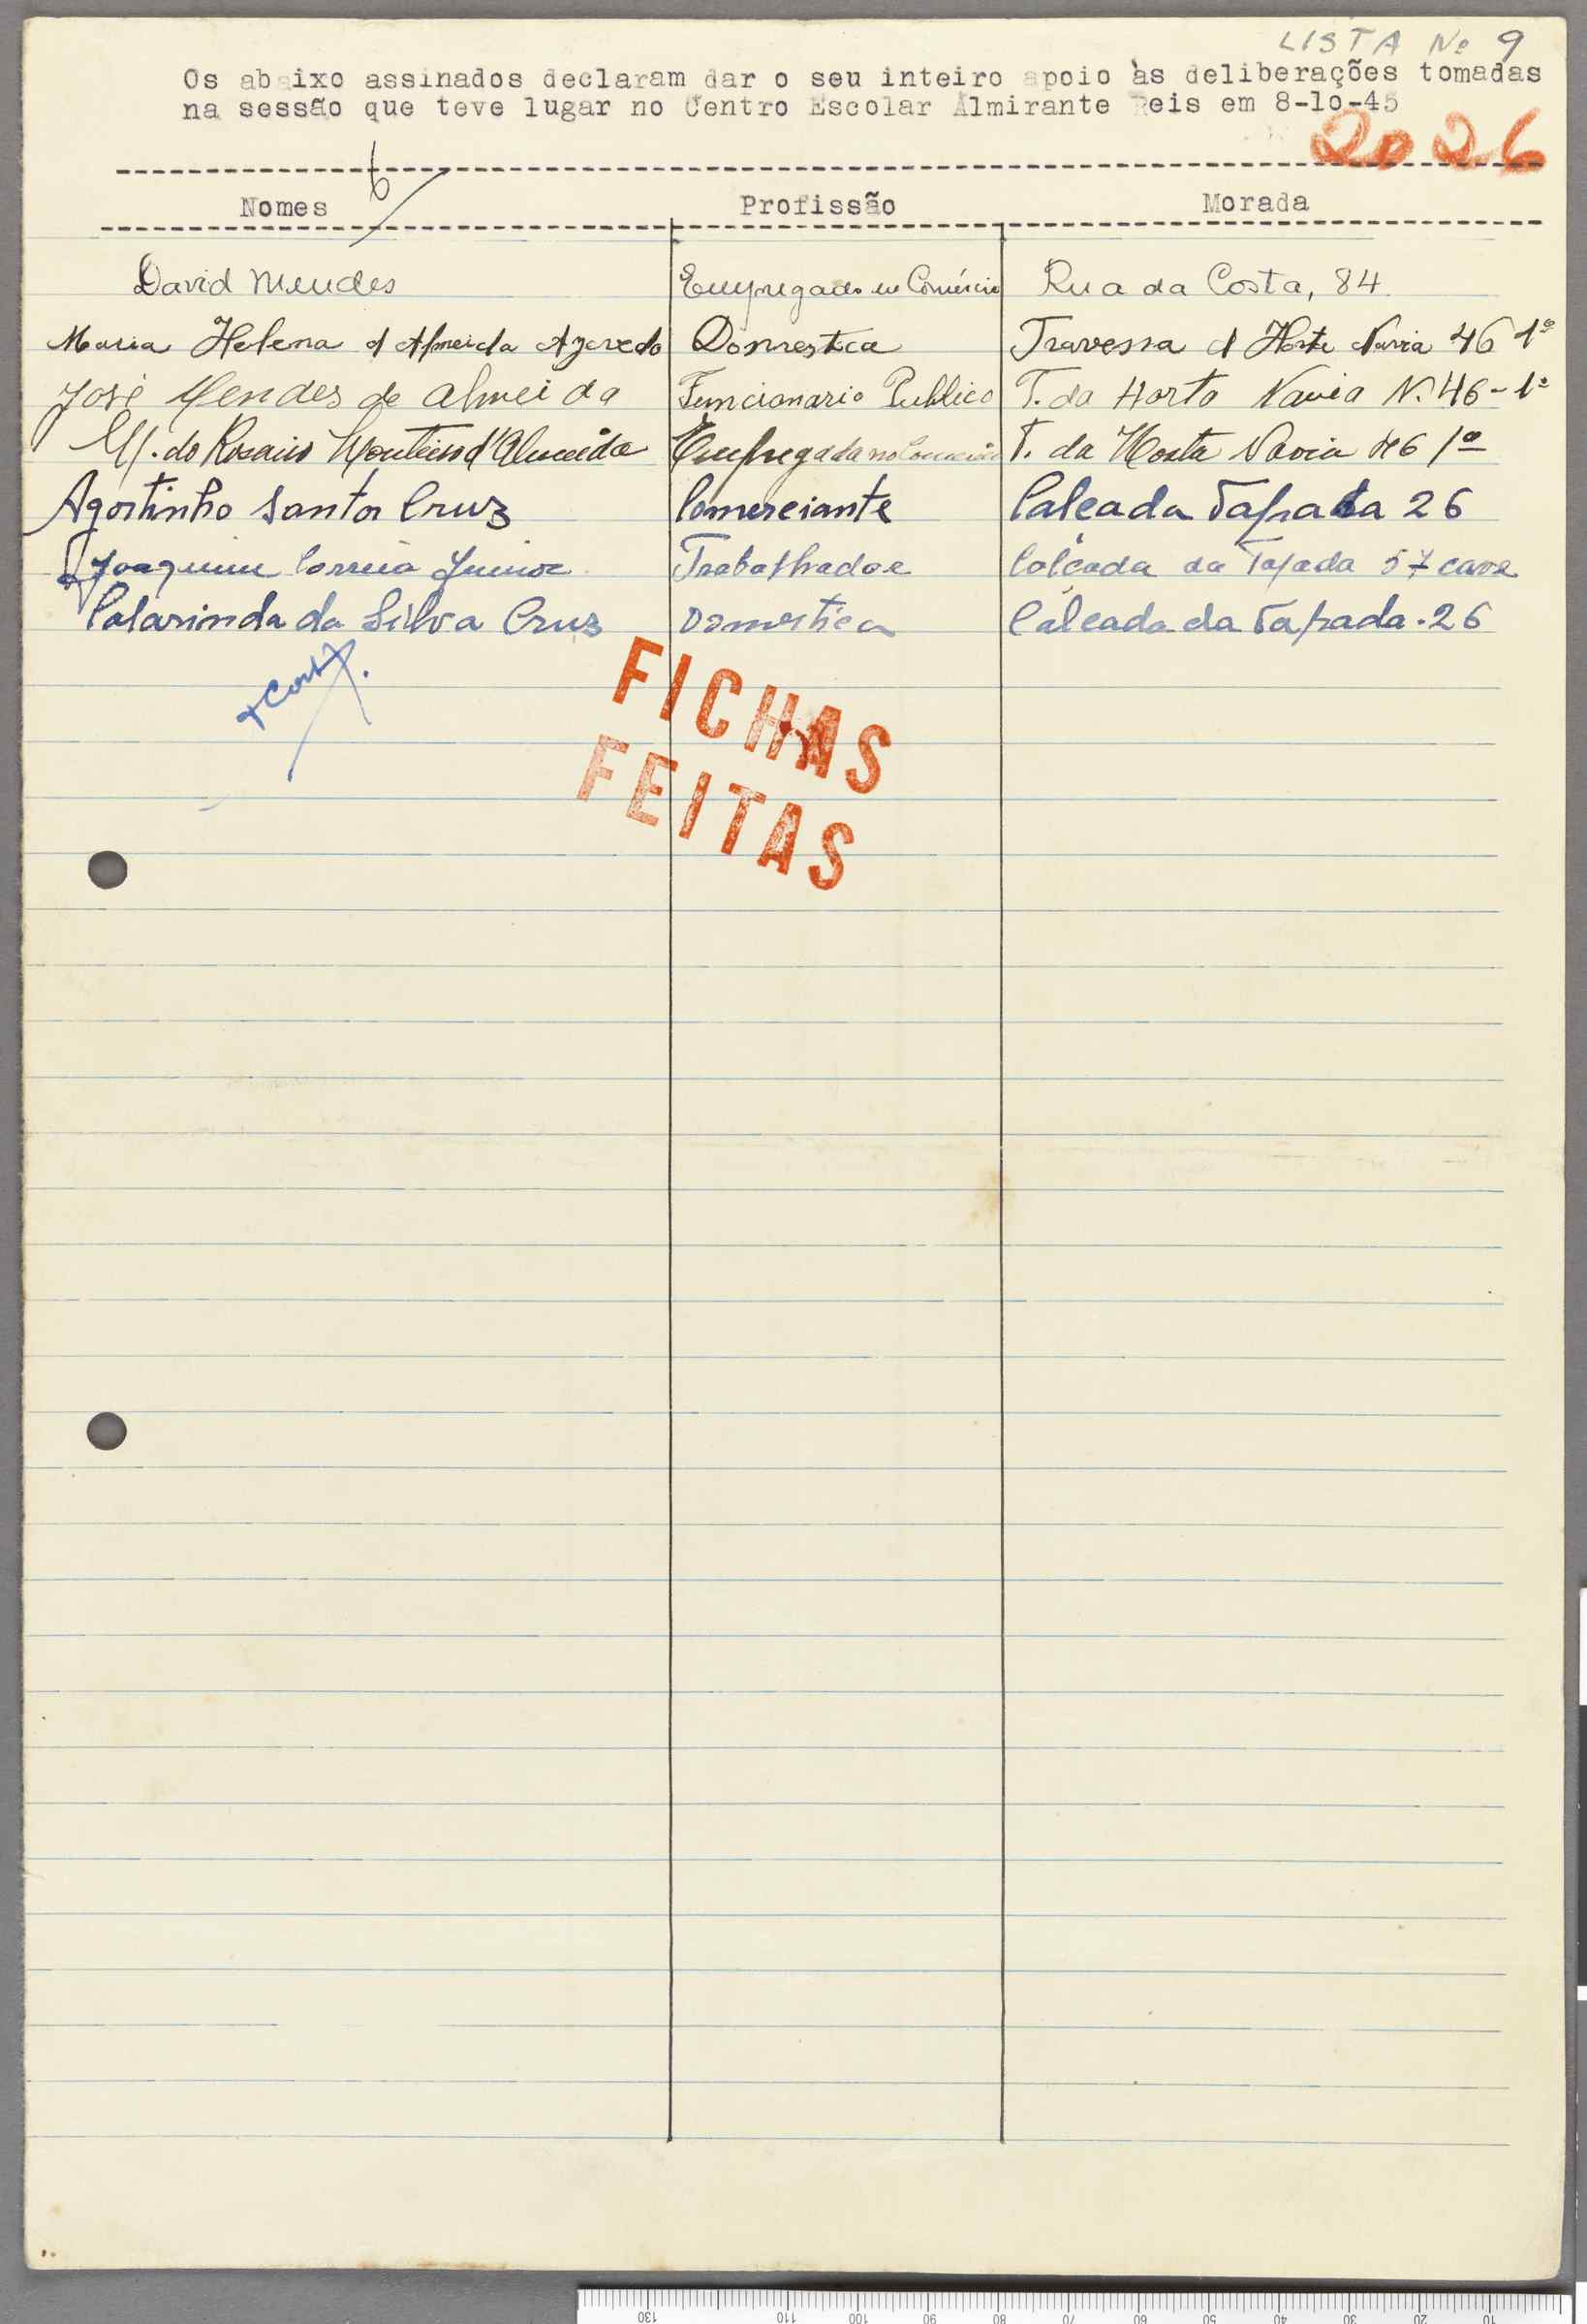 LISTA Nº 9
Os abaixo assinados declaram dar o seu inteiro apoio às deliberações tomadas
na sessão que teve lugar no Centro Escolar Almirante Reis em 8-10-45
2026
6
Nomes Profissão Morada
David Mendes Empregado no Comércio Rua da Costa, 84
Maria Helena d Almeida Azevedo Domestica Travessa d Horta Navia 46 1º
José Mendes de Almeida Funcionario Publico T. da Horta Navia N. 46-1º
M. do Rosario Monteiro d'Almeida Empregada no Comercio T. da Horta Navia 46 1º
Agostinho Santos Cruz Comerciante Calcada Tapada 26
Joaquim Correia Junior Trabalhador Calçada da Tapada 57 cave
Clarinda da Silva Cruz Domestica Calcada da Tapada. 26
FICHAS
FEITAS
130 110 100 90 80 70 60 50 40 30 20 10